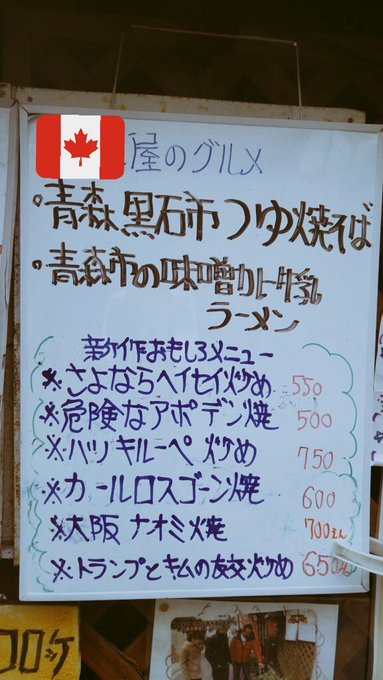 屋のグルメ
・青森 黒石市 つゆ焼そば
・青森市の味噌カレー牛乳
ラーメン
新作おもしろメニュー
※さよならヘイセイ炒め 550
※危険なアポデン焼 500
※ハツキルーペ 炒め 750
※カールロスゴーン焼 600
※大阪ナオミ焼 700えん
※トランプとキムの友交炒め 650
コロッケ